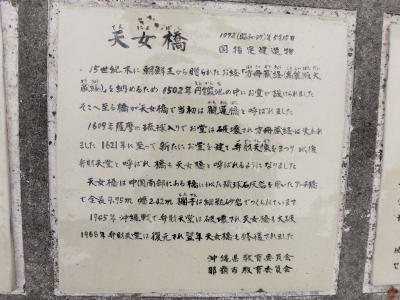 天女橋
1972(昭和47)年5月15日
国指定建造物
15世紀末に朝鮮王から贈られたお経(方冊蔵経=高麗版大
蔵経)を納めるため1502年円鑑池の中にお堂が設けられました
そこへ至る橋が天女橋で当初は観蓮橋と呼ばれました
1609年薩摩の琉球入りでお堂は破壊され方冊蔵経は失われ
ました 1621年に至って新たにお堂を建て弁財天像をまつり以後
弁財天堂と呼ばれ 橋も天女橋と呼ばれるようになりました
天女橋は中国南部にある橋に似た琉球石灰岩を用いたアーチ橋
で全長9.75m 幅2.42m 欄干は細粒砂岩でつくられています
1945年沖縄戦で弁財天堂は破壊され天女橋も大破
1968年弁財天堂は復元され翌年天女橋も修復されました
沖縄県教育委員会
那覇市教育委員会